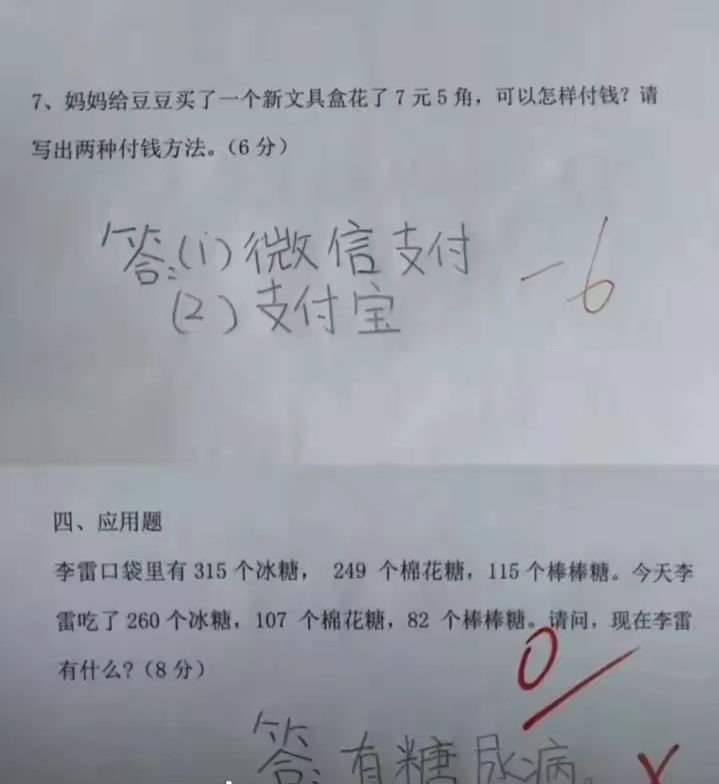 7、妈妈给豆豆买了一个新文具盒花了7元5角，可以怎样付钱？请
写出两种付钱方法。（6分）
答:(1)微信支付
(2)支付宝
-6
四、应用题
李雷口袋里有315个冰糖， 249 个棉花糖，115个棒棒糖。今天李
雷吃了260个冰糖，107 个棉花糖，82 个棒棒糖。请问，现在李雷
有什么？（8分）
0
答:有糖尿病。